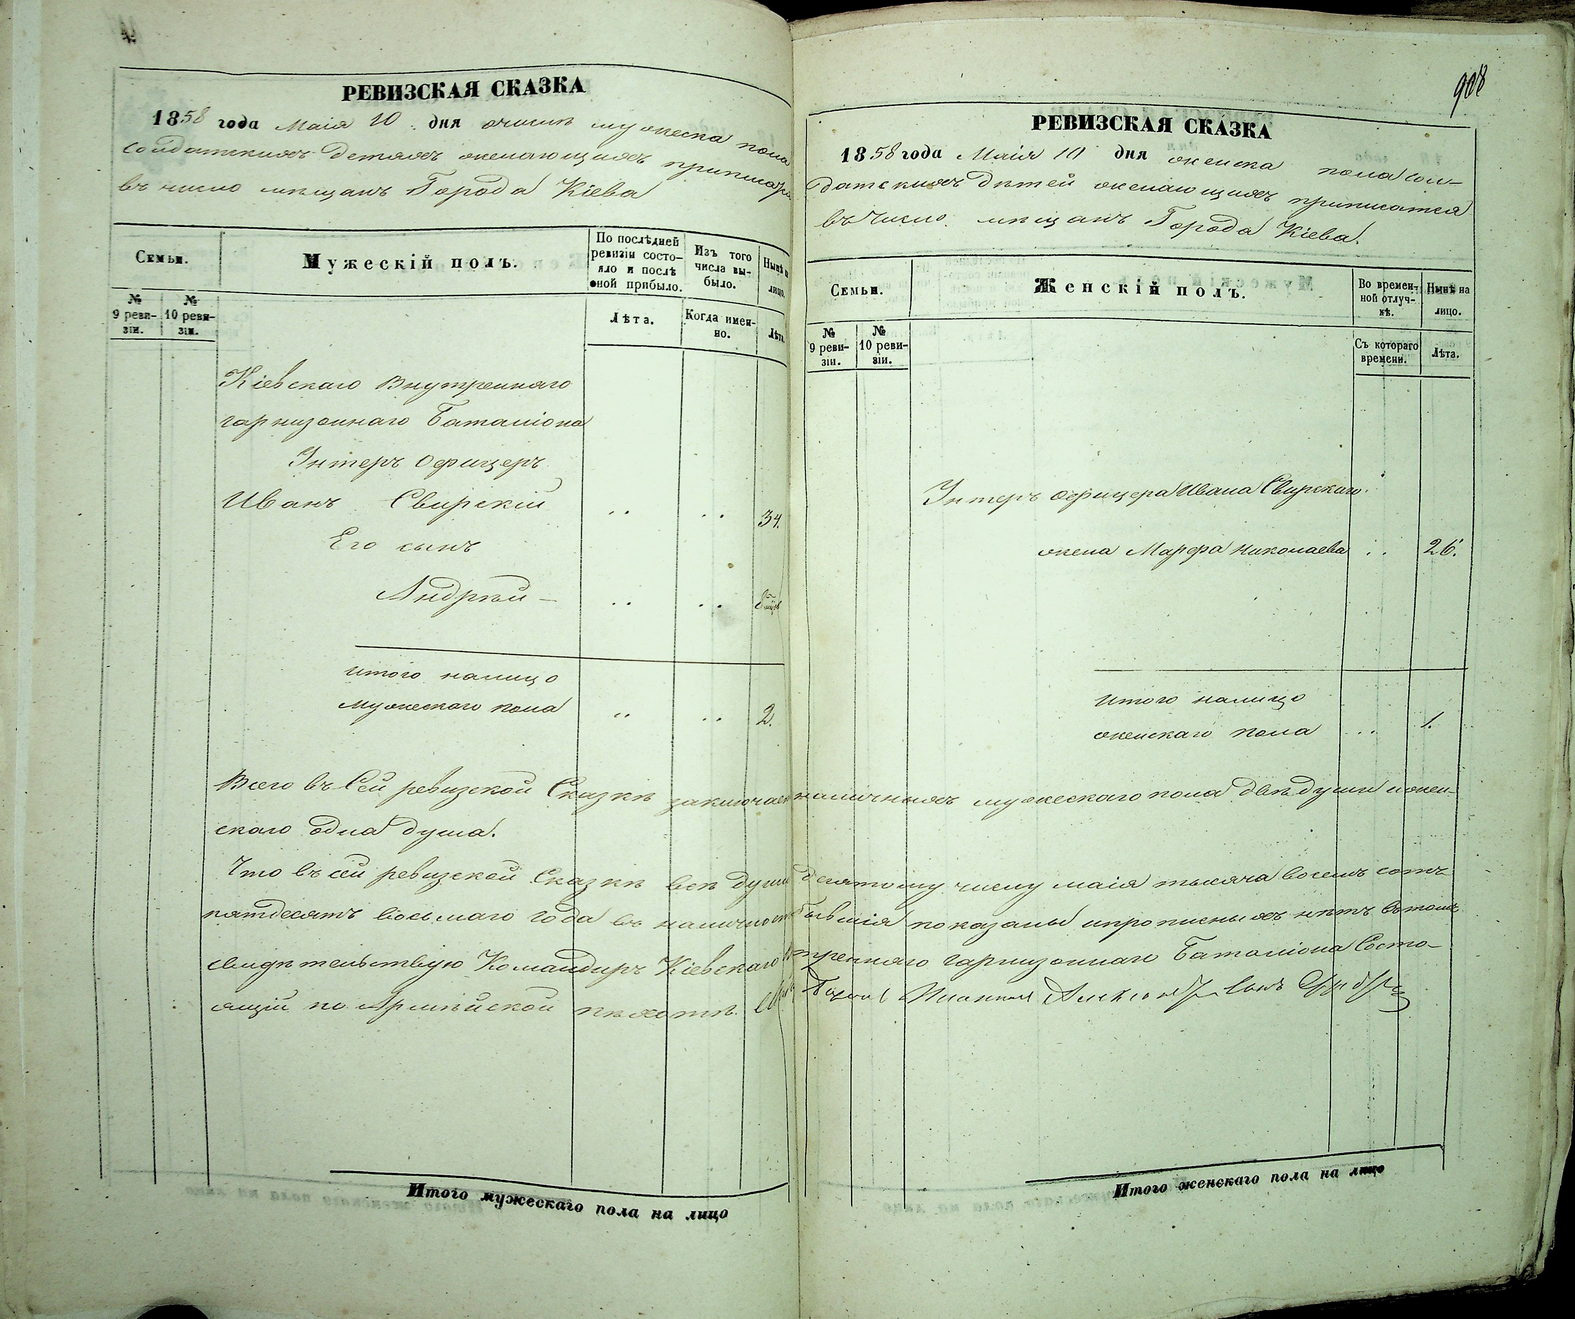 РЕВИЗСКАЯ СКАЗКА
1858 года Маія 10 дня о числѣ мужеска пола
солдатскихъ детяхъ желающихъ приписат
въ число мѣщанъ Города Кіева
Семьи.
Мужескій полъ.
По послѣдней ревизіи состояло и послѣ оной прибыло.
Изъ того числа выбыло.
Нынѣ на лицо.
№ 9 ревизіи.
№ 10 ревизіи.
Лѣта.
Когда именно.
Лѣта.
Кіевскаго Внутренняго
гарнизоннаго Баталіона
Унтеръ Офицеръ
Иванъ Свирскій 34.
Его сынъ
Андрей –
итого налицо
мужескаго пола 2.
Всего въ Сей ревизской Сказкѣ заключает
скаго одна душа.
Что въ сей ревизской Сказкѣ всѣ души
пятдесятъ восьмаго года въ наличност
свидѣтельствую Командиръ Кіевскаго
ящій по Армейской пѣхотѣ
Итого мужескаго пола на лицо
908
РЕВИЗСКАЯ СКАЗКА
1858 года Маія 10 дня женска пола сол-
датскихъ дѣтей желающихъ приписатся
въ число мѣщанъ Города Кіева.
Семьи.
Женскій полъ.
Во временной отлучкѣ.
Нынѣ на лицо.
№ 9 ревизіи.
№ 10 ревизіи.
Съ котораго времени.
Лѣта.
Унтеръ офицера Ивана Свирскаго
жена Марфа Николаева 26.
итого налицо
женскаго пола 1.
наличныхъ мужескаго пола двѣ души и жен-
десятому числу маія тысяча восемь сотъ
бывшія показаны и прописныхъ нѣтъ въ томъ
тренняго гарнизоннаго Баталіона Состо-
Итого женскаго пола на лицо